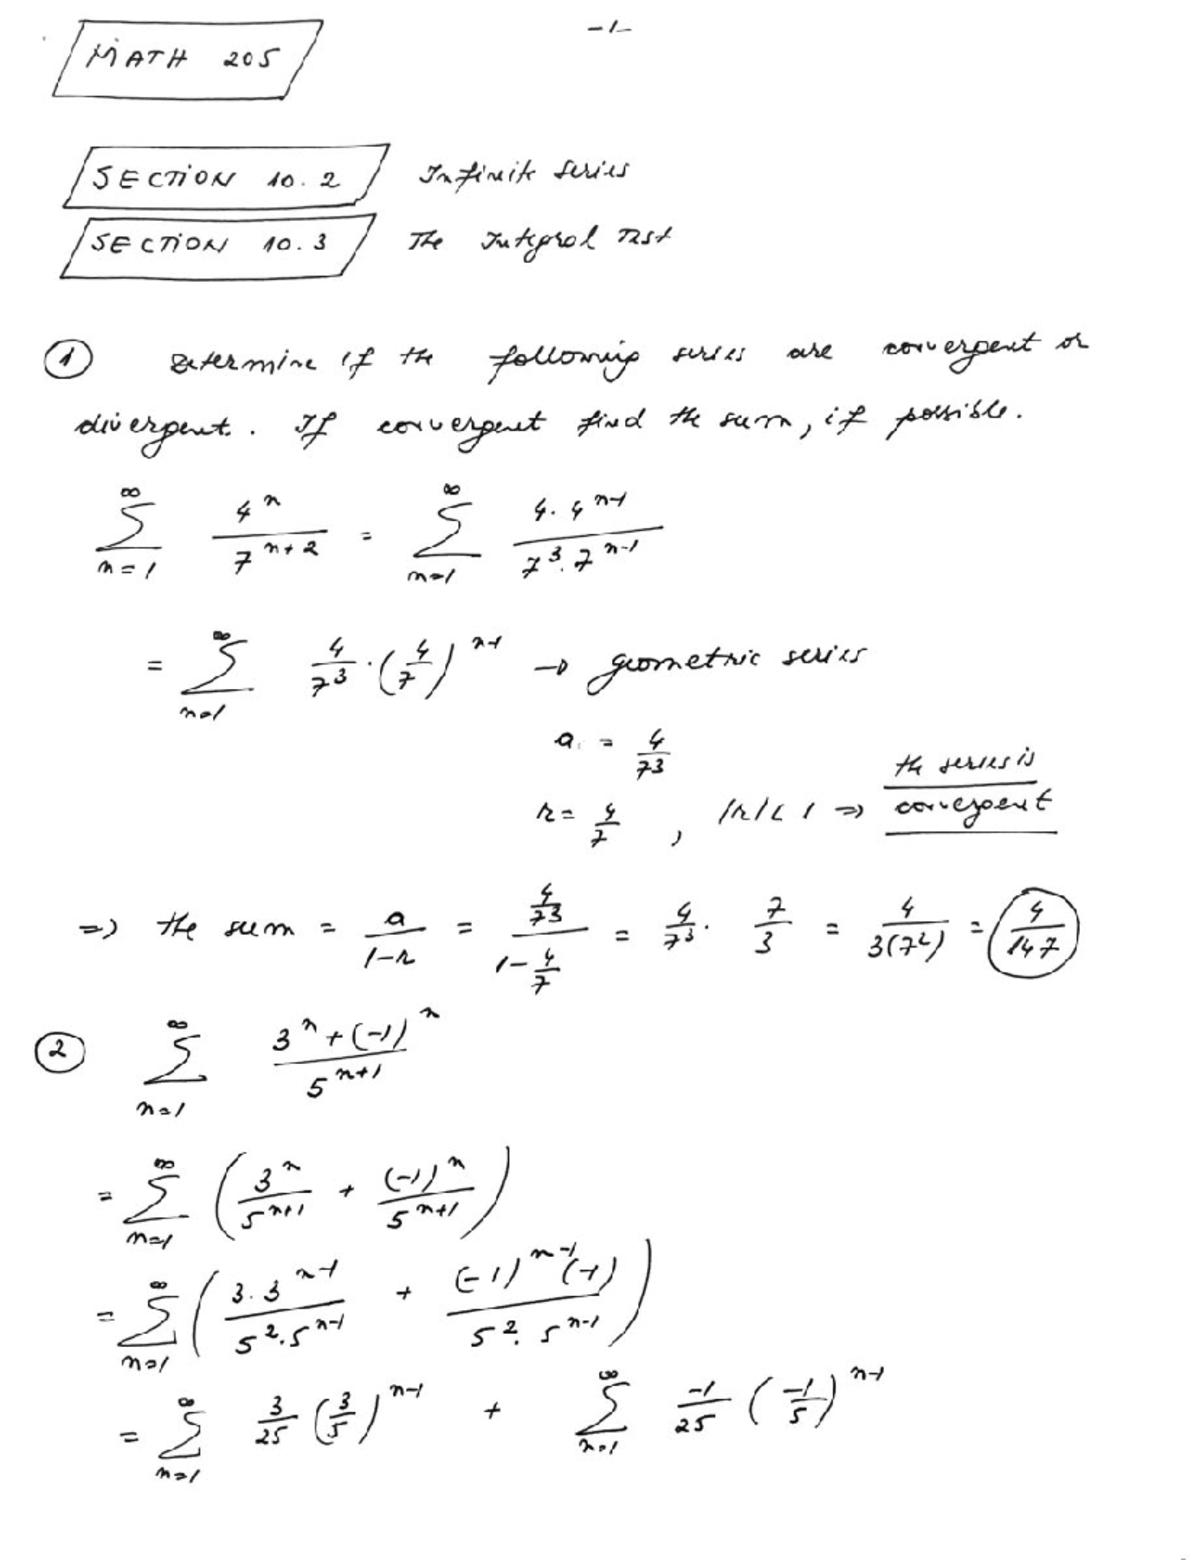 -1-
MATH 205
SECTION 10.2 Infinite Series
SECTION 10.3 The Integral Test
① Determine if the following series are convergent or
divergent. If convergent find the sum, if possible.
∞ ∑ n=1 4^n / 7^(n+2) = ∞ ∑ n=1 4·4^(n-1) / 7^3·7^(n-1)
= ∞ ∑ n=1 4/7^3 · (4/7)^(n-1) → geometric series
a = 4/7^3
r = 4/7 , |r| < 1 ⇒ the series is convergent
⇒ the sum = a/(1-r) = (4/7^3)/(1-4/7) = 4/7^3 · 7/3 = 4/3(7^2) = 4/147
② ∞ ∑ n=1 (3^n + (-1)^n) / 5^(n+1)
= ∞ ∑ n=1 (3^n/5^(n+1) + (-1)^n/5^(n+1))
= ∞ ∑ n=1 (3·3^(n-1)/5^2·5^(n-1) + (-1)^(n-1)(-1)/5^2·5^(n-1))
= ∞ ∑ n=1 3/25 (3/5)^(n-1) + ∞ ∑ n=1 -1/25 (-1/5)^(n-1)